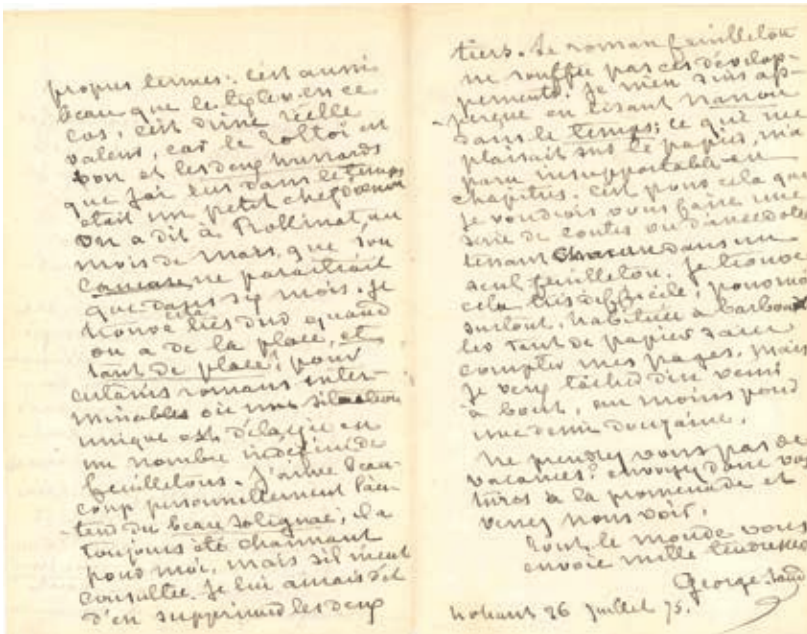 propres termes: c'est aussi
beau que le texte, en ce
cas, c'est d'une réelle
valeur, car le Tolstoï est
bon et les deux hussards
que j'ai lus dans le temps
était un petit chef d'œuvre
On a dit à Rollinat, au
mois de mars, que son
ne paraîtrait
que dans six mois. Je
trouve cela très dur quand
on a de la place, et
tant de place! pour
certains romans inter-
minables où une situation
unique est délayée en
un nombre indéfini de
feuilletons. J'aime beau-
coup personnellement l'au-
teur du beau Solignac; il a
toujours été charmant
pour moi, mais s'il m'eut
consultée, je lui aurais dit
d'en supprimer les deux
tiers. Le roman feuilleton
ne souffre pas ces dévelop-
pements. Je m'en suis ap-
perçue en lisant Nanon
dans le temps; ce qui me
plaisait sur le papier, m'a
paru insupportable en
chapitres. C'est pour cela que
je voudrois vous faire une
série de contes ou d'anecdotes
tenant chacun dans un
seul feuilleton. Je trouve
cela très difficile, pour moi
surtout, habituée à barbouil
ler tant de papier sans
compter mes pages, mais
je veux tâcher d'en venir
à bout, au moins pour
une demi douzaine.
Ne prendrez vous pas de
vacances? envoyez donc vos
à la promenade et
venez nous voir.
Tout le monde vous
envoie mille tendresses
George Sand
Nohant 26 juillet 75.